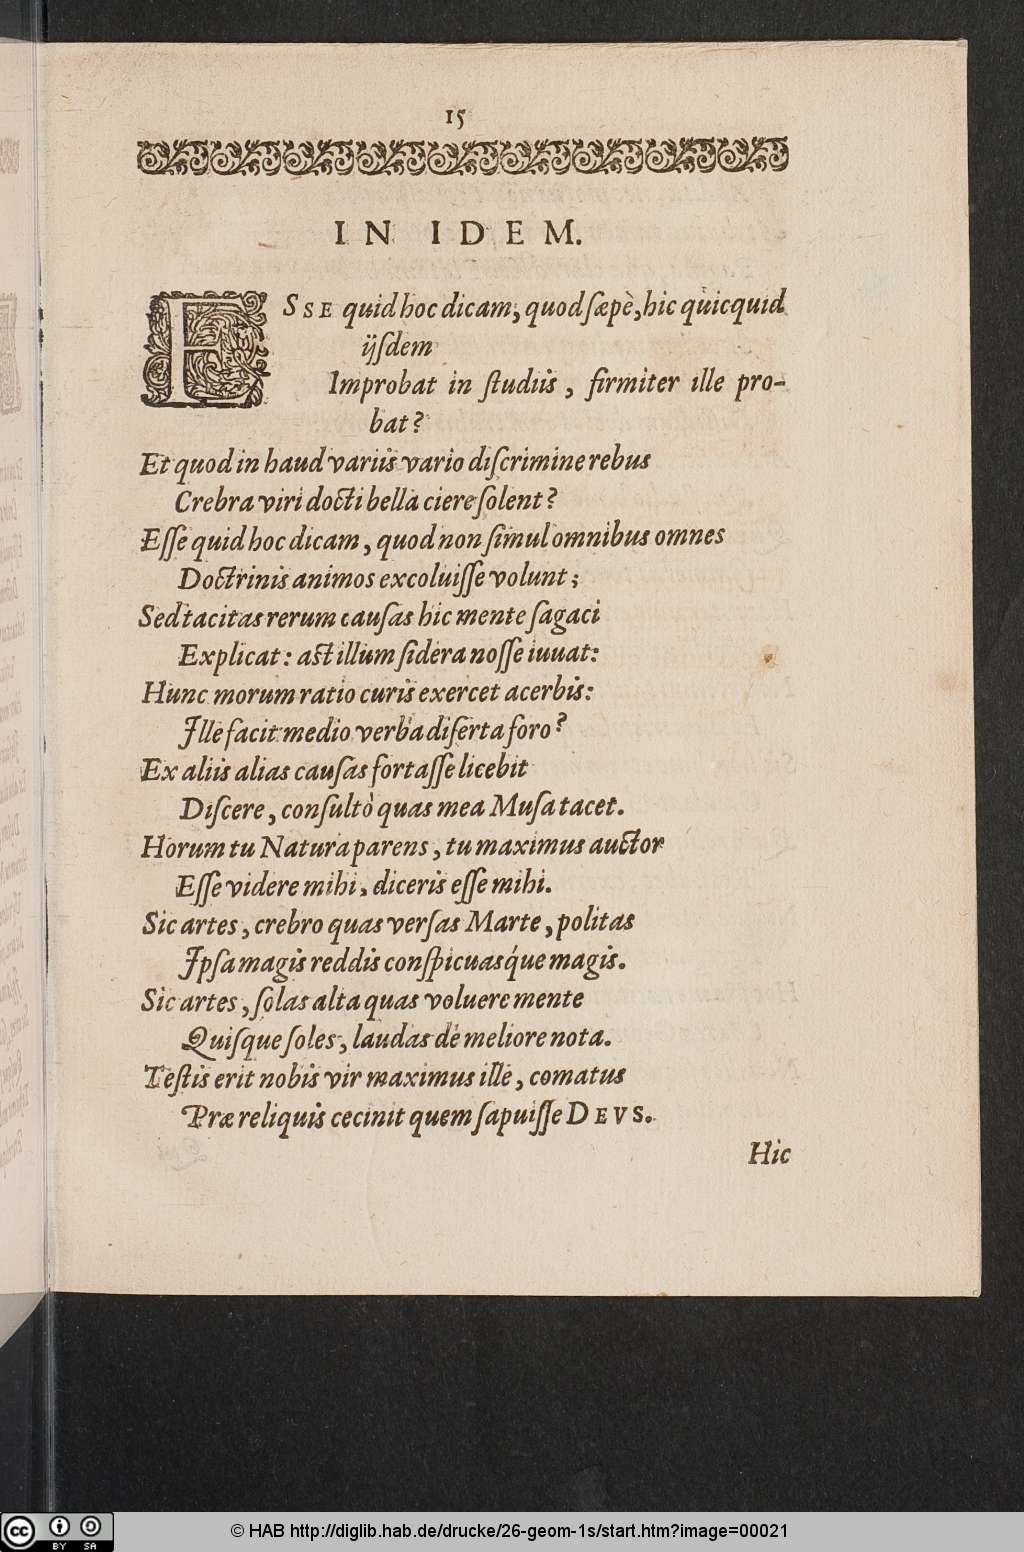 15
IN IDEM.
ESSE quid hoc dicam, quod sæpè, hic quicquid
ijsdem
Improbat in studiis, firmiter ille pro-
bat?
Et quod in haud variis vario discrimine rebus
Crebra viri docti bella ciere solent?
Esse quid hoc dicam, quod non simul omnibus omnes
Doctrinis animos excoluisse volunt;
Sed tacitas rerum causas hic mente sagaci
Explicat: ast illum sidera nosse iuuat:
Hunc morum ratio curis exercet acerbis:
Ille facit medio verba diserta foro?
Ex aliis alias causas fortasse licebit
Discere, consultò quas mea Musa tacet.
Horum tu Natura parens, tu maximus auctor
Esse videre mihi, diceris esse mihi.
Sic artes, crebro quas versas Marte, politas
Ipsa magis reddis conspicuasq́ue magis.
Sic artes, solas alta quas voluere mente
Quisque soles, laudas de meliore nota.
Testis erit nobis vir maximus ille, comatus
Præ reliquis cecinit quem sapuisse DEVS.
Hic
cc BY SA
© HAB http://diglib.hab.de/drucke/26-geom-1s/start.htm?image=00021